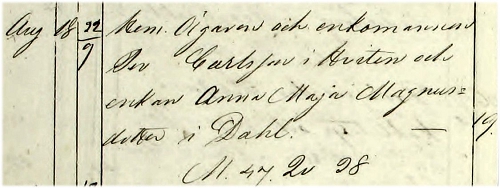 Aug 18 22/9 Hem. Ägaren och enkomannen
Per Carlsson i Hviten och
enkan Anna Maja Magnus=
dotter i Dahl. — 19.
M. 47. Qv 38